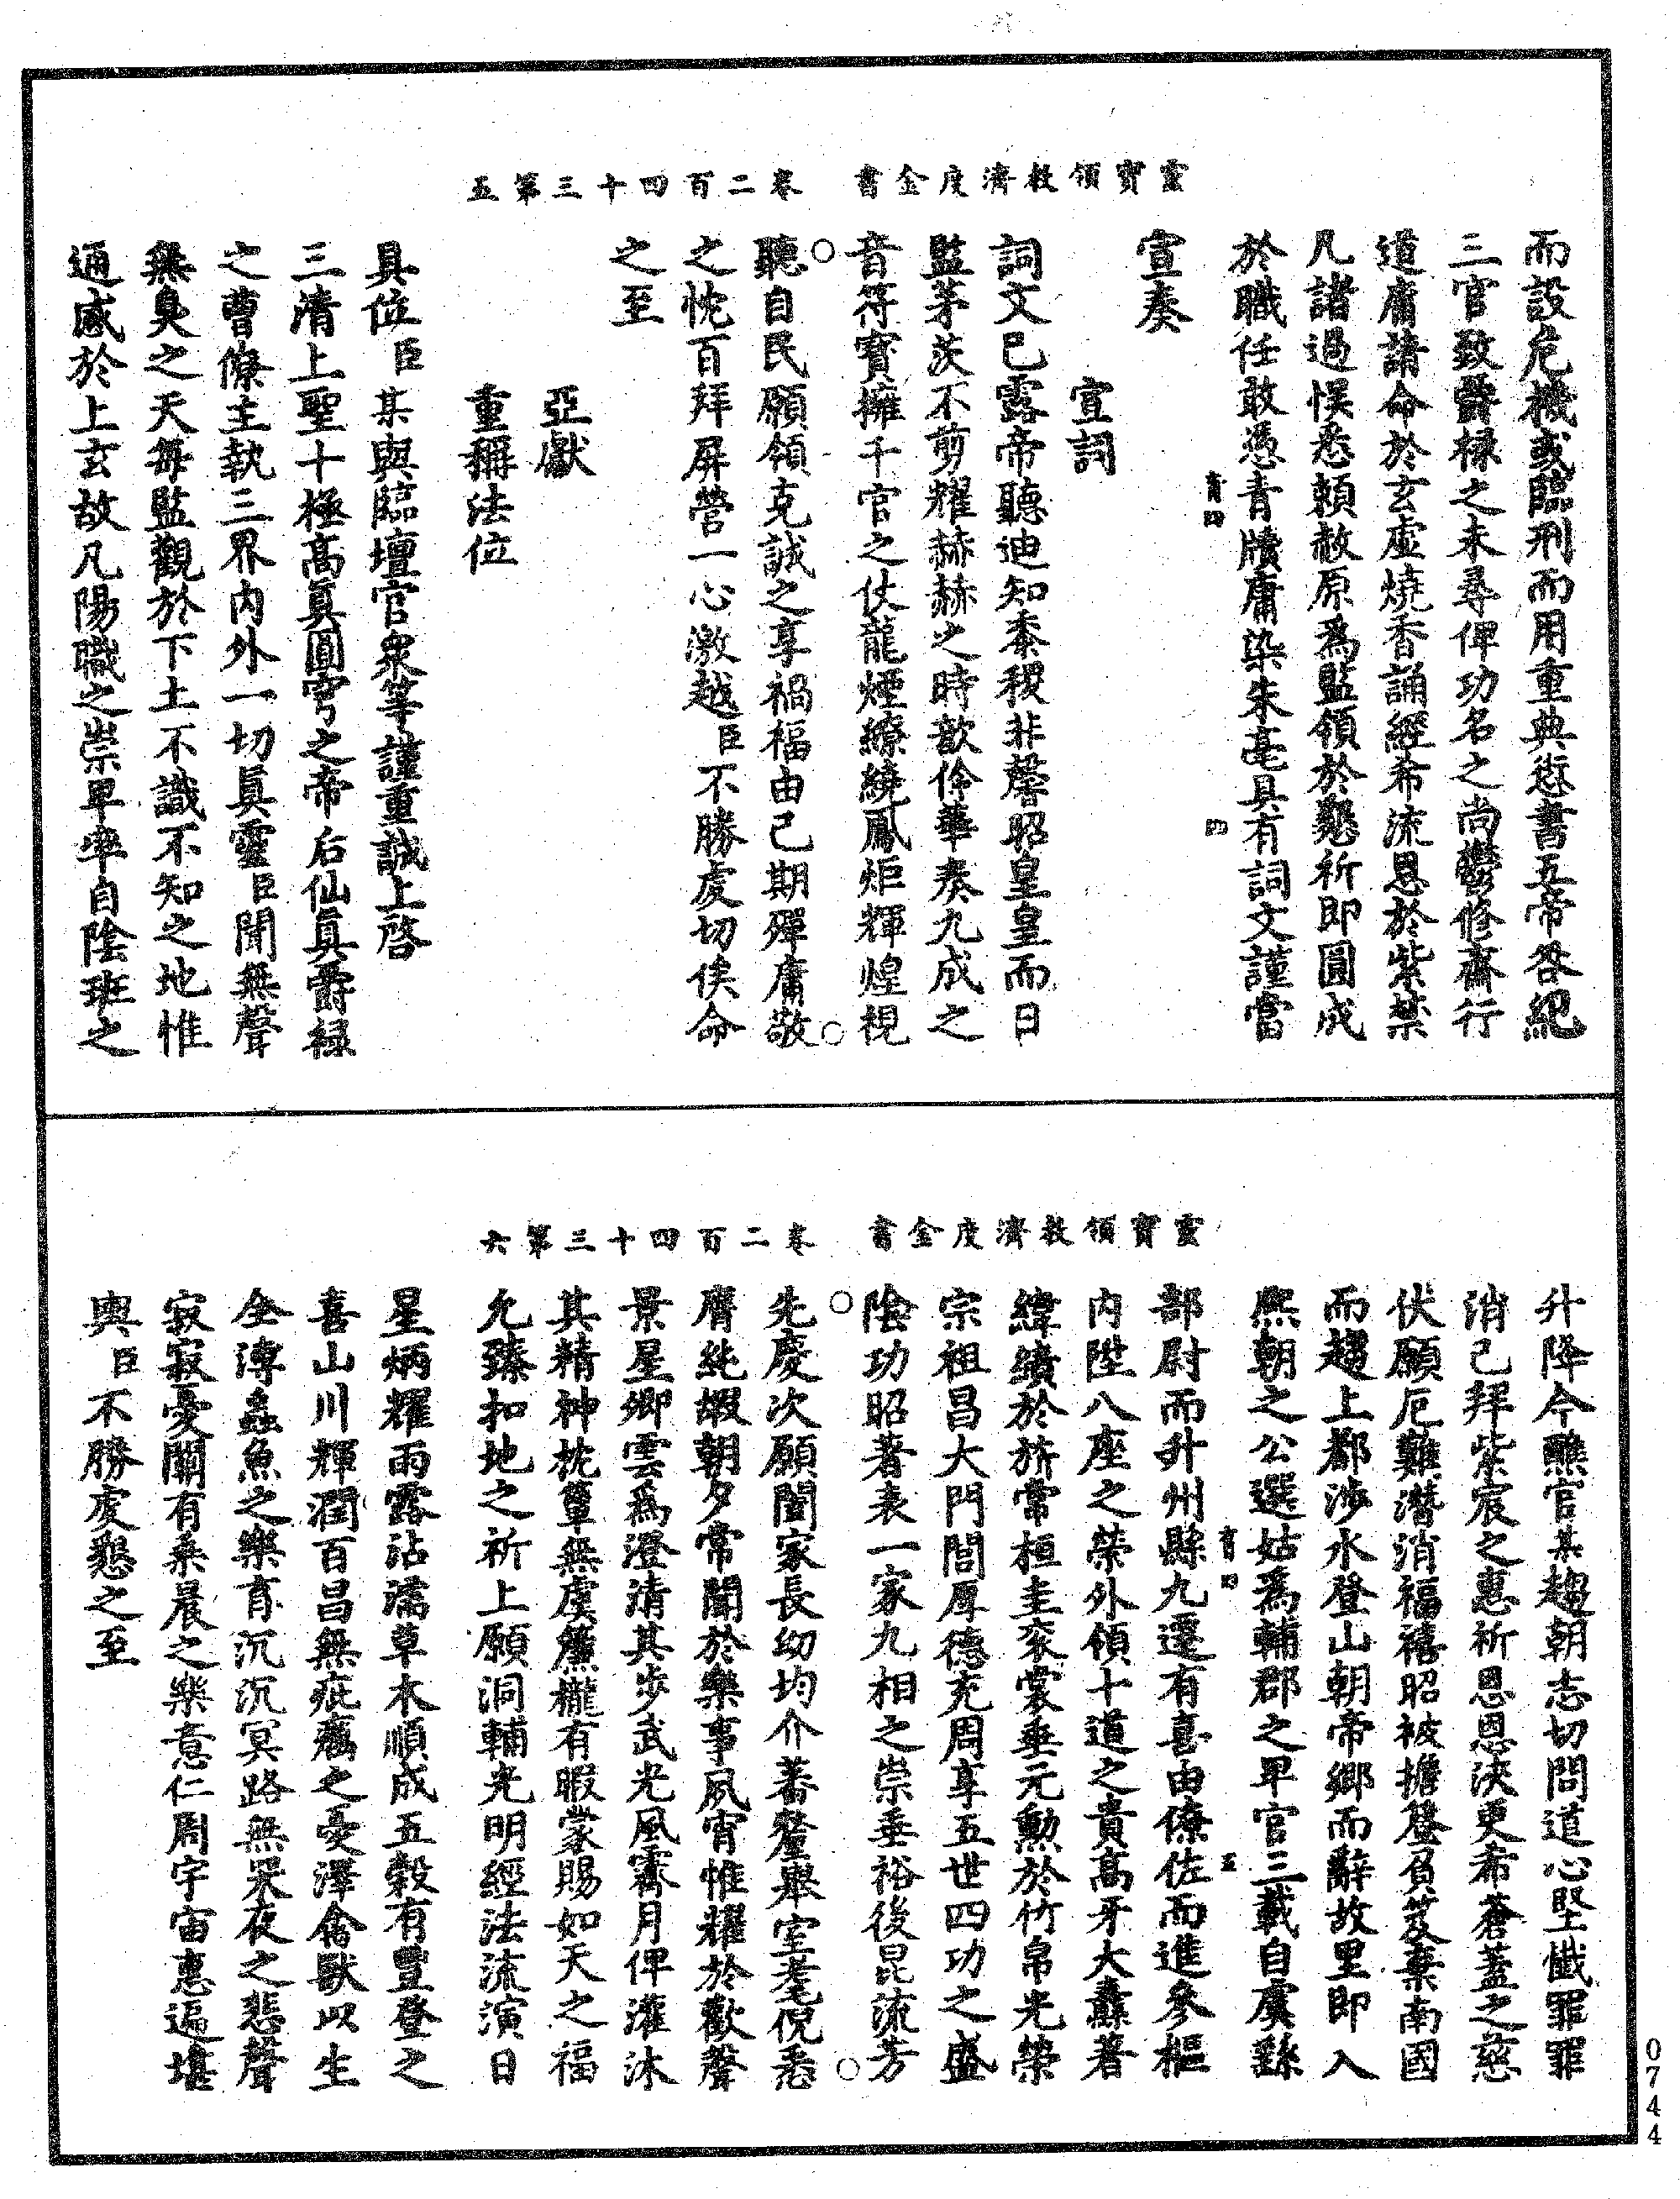 靈寶領教濟度金書　卷二百四十三第五
而設危機或臨刑而用重典愆書五帝咎紀
三官致爵祿之未尋俾功名之尚鬱修齋行
道庸請命於玄虛燒香誦經希流恩於紫禁
凡諸過悞悉賴赦原爲監領於懇祈即圓成
於職任敢憑青牘庸染朱毫具有詞文謹當
宣奏
宣詞
詞文已露帝聽迪知黍稷非馨昭皇皇而日
監茅茨不剪耀赫赫之時歆伶華奏九成之
音符寶擁千官之仗龍煙繚繞鳳炬輝煌視
聽自民願領克誠之享禍福由己期殫庸敬
之忱百拜屏營一心激越臣不勝虔切俟命
之至
亞獻
重稱法位
具位臣某與臨壇官衆等謹重誠上啓
三清上聖十極高眞圓穹之帝后仙眞爵祿
之曹僚主執三界內外一切眞靈臣聞無聲
無臭之天每監觀於下土不識不知之地惟
通感於上玄故凡陽職之崇卑率自陰班之
靈寶領教濟度金書　卷二百四十三第六
升降今醮官某趨朝志切問道心堅懺罪罪
消已拜紫宸之惠祈恩恩浹更希蒼蓋之慈
伏願厄難潛消福禧昭被擔簦負笈棄南國
而趨上都涉水登山朝帝鄉而辭故里即入
熙朝之公選姑爲輔郡之卑官三載自虞縣
部尉而升州縣九遷有喜由僚佐而進參樞
內陞八座之榮外領十道之貴高牙大纛著
緯績於旂常桓圭袞裳垂元勳於竹帛光榮
宗祖昌大門閭厚德充周享五世四功之盛
陰功昭著表一家九相之崇垂裕後昆流芳
先慶次願闔家長幼均介蕃釐舉室耄倪悉
膺純嘏朝夕常聞於樂事夙宵惟耀於歡聲
景星卿雲爲澄清其步武光風霽月俾灌沐
其精神枕簟無虞簾櫳有暇蒙賜如天之福
允臻扣地之祈上願洞輔光明經法流演日
星炳耀雨露沾濡草木順成五穀有豐登之
喜山川輝潤百昌無疵癘之憂澤禽獸以生
全溥蟲魚之樂育沉沉冥路無哭夜之悲聲
寂寂憂關有乘晨之樂意仁周宇宙惠遍堪
輿臣不勝虔懇之至
0744